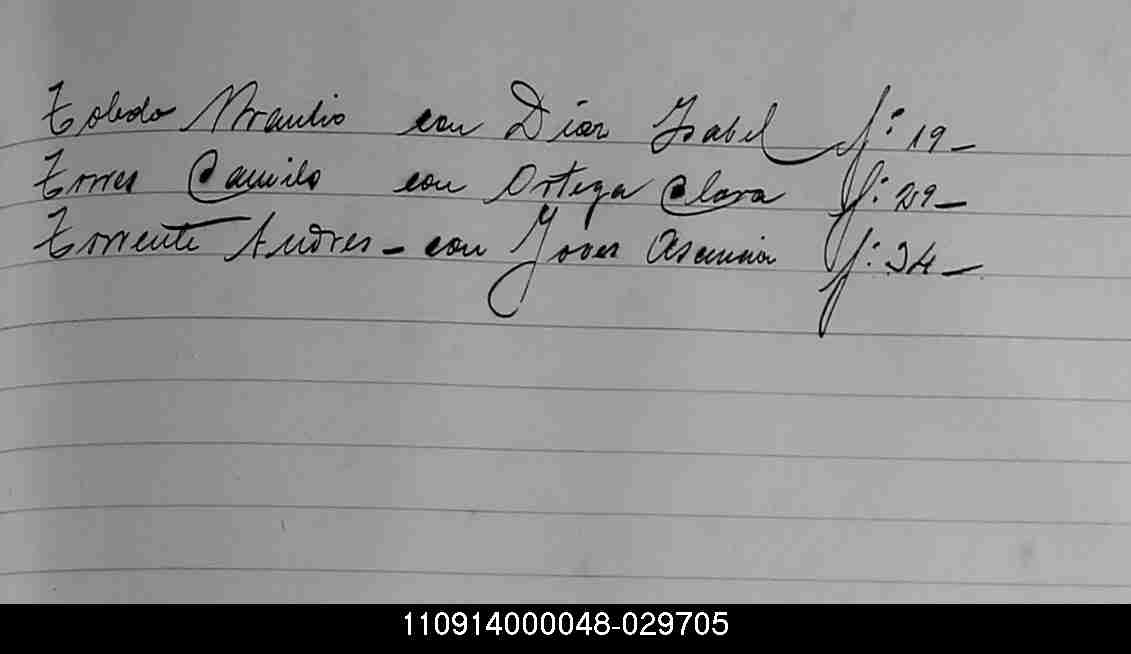 Toledo Braulio con Diaz Isabel f: 19-
Torres Camilo con Ortega Clara f: 29-
Torrente Andres - con Jover Asencia f: 34-
110914000048-029705